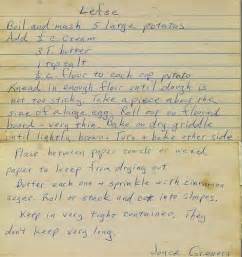 Lefse
Boil and mash 5 large potatos
Add ½ c. cream
3 T. butter
1 tsp salt
½ c. flour to each cup potato
Knead in enough flour until dough is
not too sticky. Take a piece about the
size of a large egg. Roll out on floured
board - very thin. Bake on dry griddle
until lightly brown. Turn + bake other side.
Place between paper towels or waxed
paper to keep from drying out.
Butter each one + sprinkle with cinnamon
sugar. Roll or stack and cut into shapes.
Keep in very tight container. They
don't keep very long.
Joyce